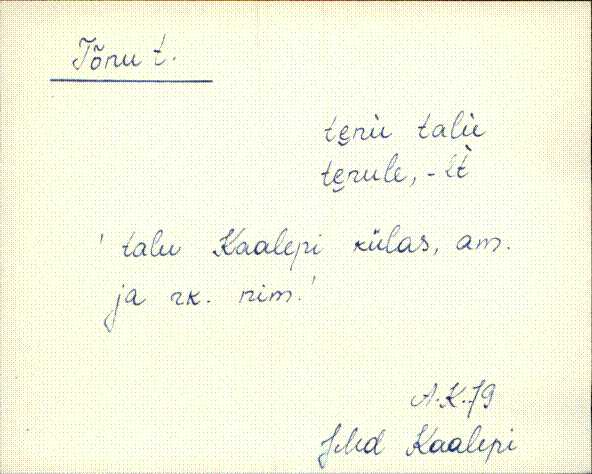 Tõnu t.
te̮nù talù
te̮nule, -lt̀
' talu Kaalepi külas, am.
ja rk. nim.'
A.K.79
JMd Kaalepi